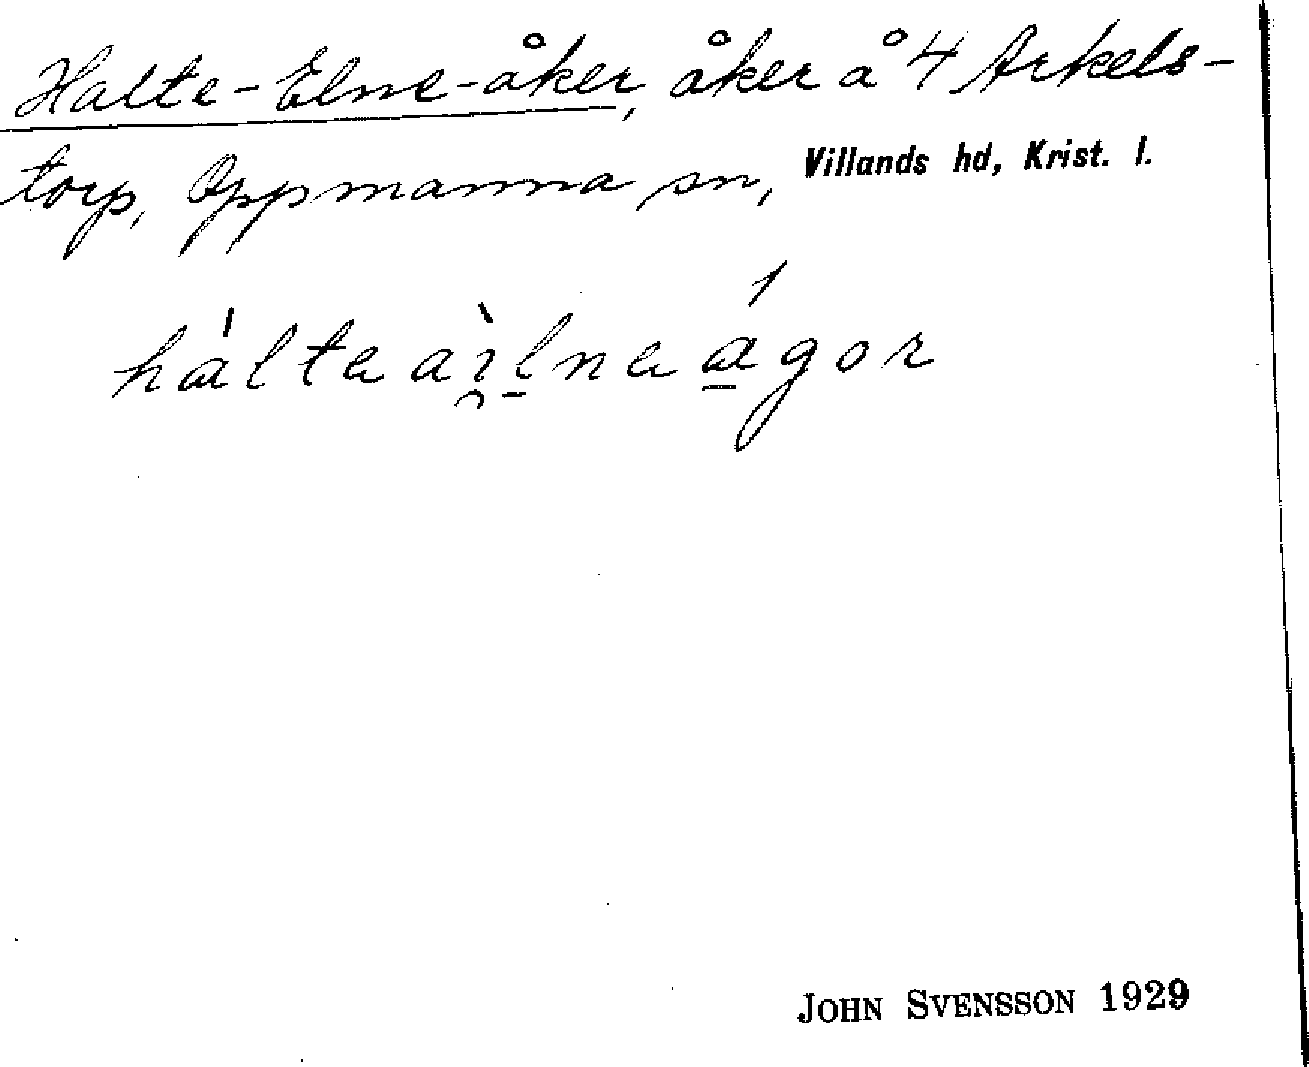 Halte-Elne-åker, åker å 4 Arkels-
torp, Oppmanna sn, Villands hd, Krist. l.
hàlta aìlna ágor
JOHN SVENSSON 1929